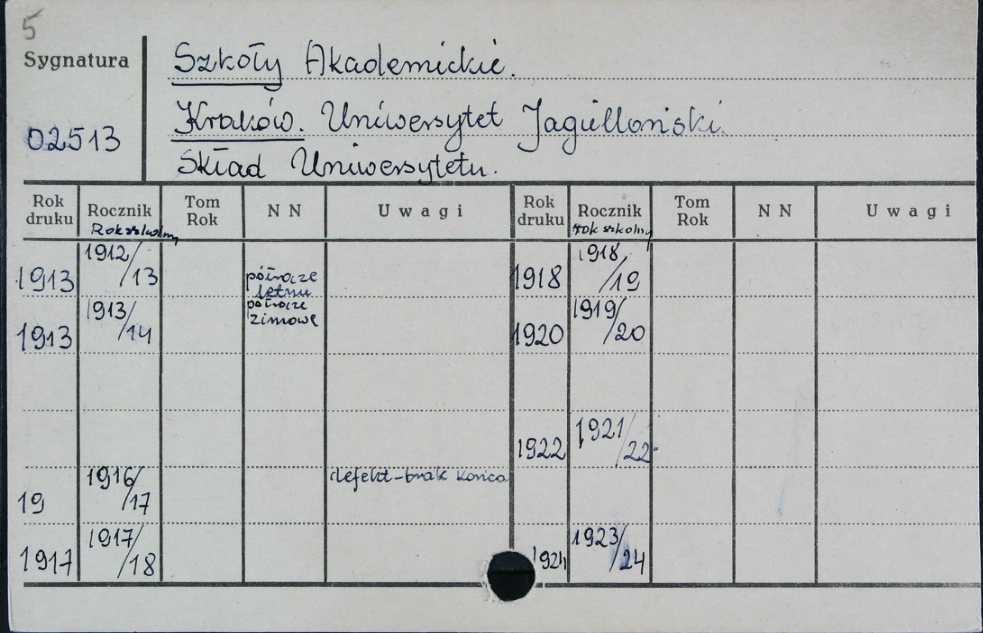 5
Sygnatura
02513
Szkoły Akademickie.
Kraków. Uniwersytet Jagielloński.
Skład Uniwersytetu.
Rok druku Rocznik Rok szkolny Tom Rok N N Uwagi Rok druku Rocznik rok szkolny Tom Rok N N Uwagi
1913 1912/13 półrocze letnie 1918 1918/19
1913 1913/14 półrocze zimowe 1920 1919/20
1922 1921/22
19 1916/17 defekt-brak końca
1917 1917/18 1924 1923/24